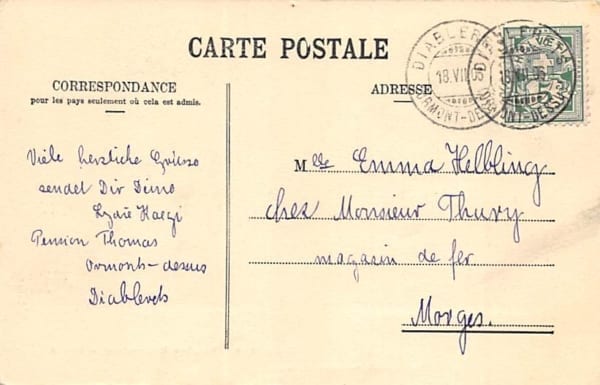 CARTE POSTALE
CORRESPONDANCE
pour les pays seulement où cela est admis.
ADRESSE
DIABLER
18.VII.06
ORMONT-DESSUS
Viele herzliche Grüsse
sendet Dir Deine
Pension Thomas
Ormonts-dessus
Diablerets
Mlle Emma Helbling
chez Monsieur Thury
magasin de fer
Morges.